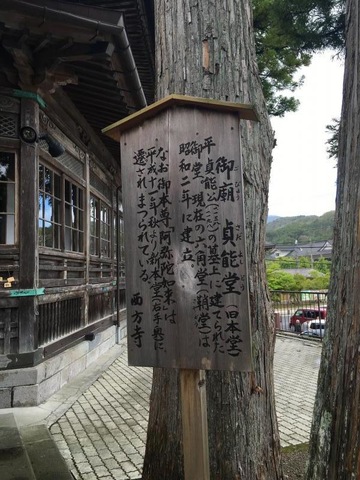 御廟 貞能堂(旧本堂)
平 貞能公の墓上に建てられた
御堂、現在の六角堂(鞘堂)は
昭和二年に建立
なお御本尊「阿弥陀如来」は
平成十一年秋より新本堂(右手奥)に
遷されまつられてゐる。
西方寺